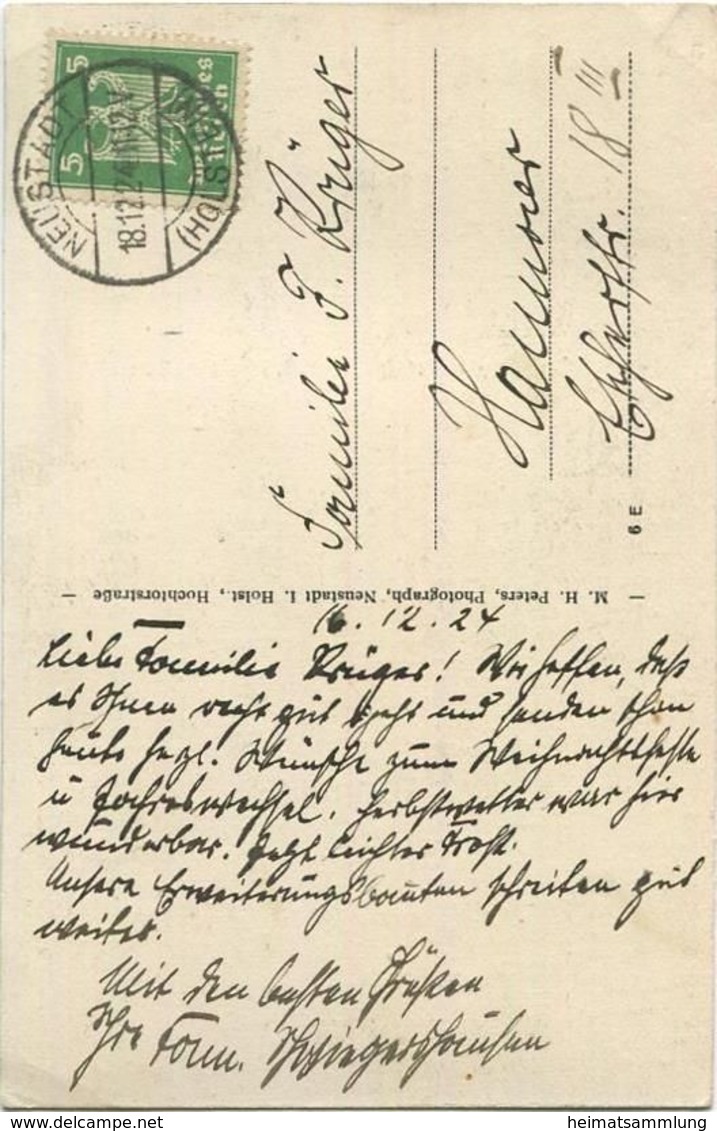 5 5
Deutsches Reich
NEUSTADT
(HOLSTEIN)
18.12.24 11-12 V
Familie F. Krüger
Hannover
18 III
6 E
— M. H. Peters, Photograph, Neustadt i. Holst., Hochtorstraße —
16.12.24
Liebe Familie Krüger! Wir hoffen, daß
es Ihnen recht gut geht und senden schon
heute hrzl. Wünsche zum Weihnachtsfeste
u Jahreswechsel. Herbstwetter war hier
wunderbar. Jetzt leichter Frost.
Unsere Erweiterungsbauten schreiten gut
weiter.
Mit den besten Grüßen
Ihre Fam. Schwiegershausen
heimatsammlung